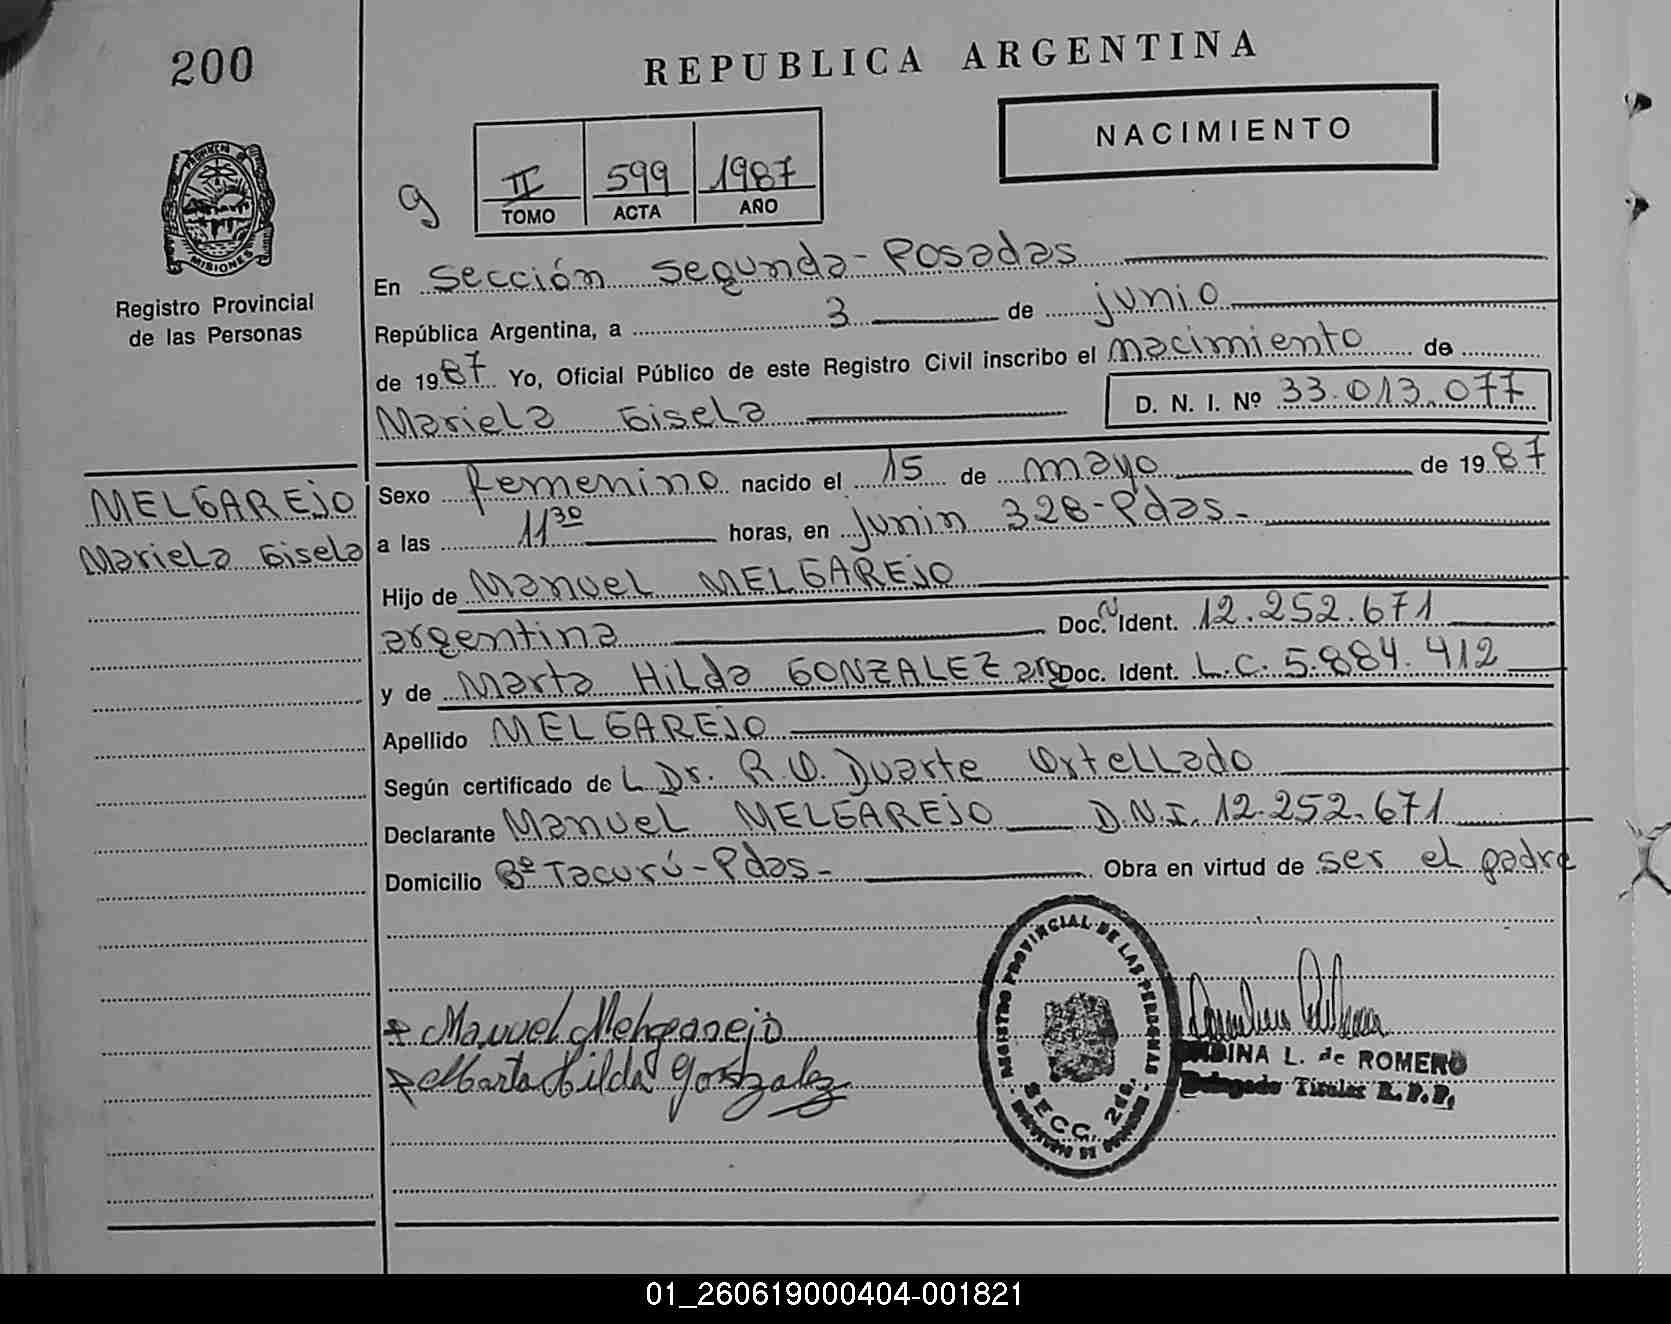 200
REPUBLICA ARGENTINA
NACIMIENTO
g
II 599 1987
TOMO ACTA AÑO
PROVINCIA DE MISIONES
Registro Provincial
de las Personas
En Sección Segunda - Posadas
República Argentina, a 3 de junio
de 1987 Yo, Oficial Público de este Registro Civil inscribo el nacimiento de
Mariela Gisela D. N. I. Nº 33.013.077
MELGAREJO
Mariela Gisela
Sexo femenino nacido el 15 de mayo de 1987
a las 11 30 horas, en Junin 328 - Pdas -
Hijo de Manuel MELGAREJO
argentina Doc. N Ident. 12.252.671
y de Marta Hilda GONZALEZ arg Doc. Ident. L.C. 5.884.412
Apellido MELGAREJO
Según certificado de L Dr. R.O. Duarte Ortellado
Declarante Manuel MELGAREJO D.N.I. 12.252.671
Domicilio Bº Tacurú - Pdas - Obra en virtud de ser el padre
Manuel Melgarejo
Marta Hilda Gonzalez
REGISTRO PROVINCIAL DE LAS PERSONAS
SECC. 2da.
L. de ROMERO
Delegado Titular R.P.P.
01_260619000404-001821